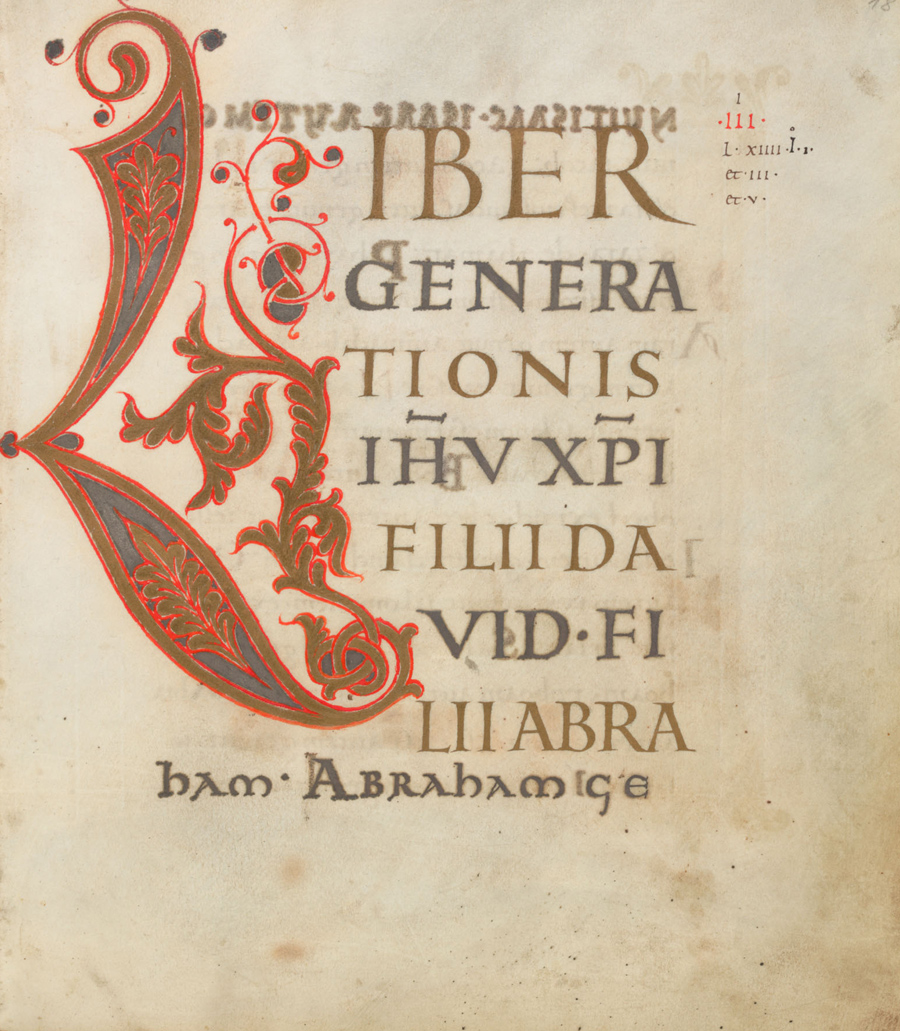 LIBER
GENERA
TIONIS
IH̅V XP̅I
FILII DA
VID·FI
LII ABRA
ham· Abraham ge
I
·III·
L· XIIII·
et·III·
et·V·
18